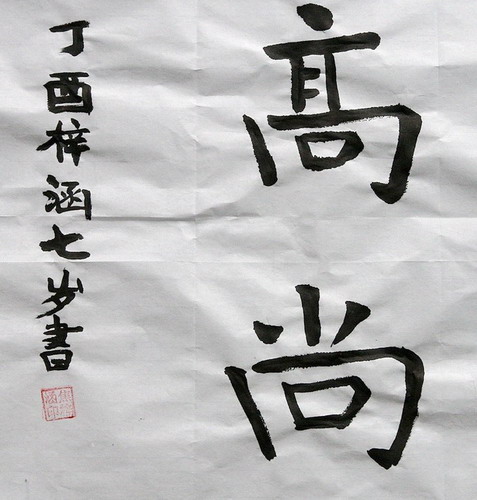 高尚
丁酉梓涵七岁書